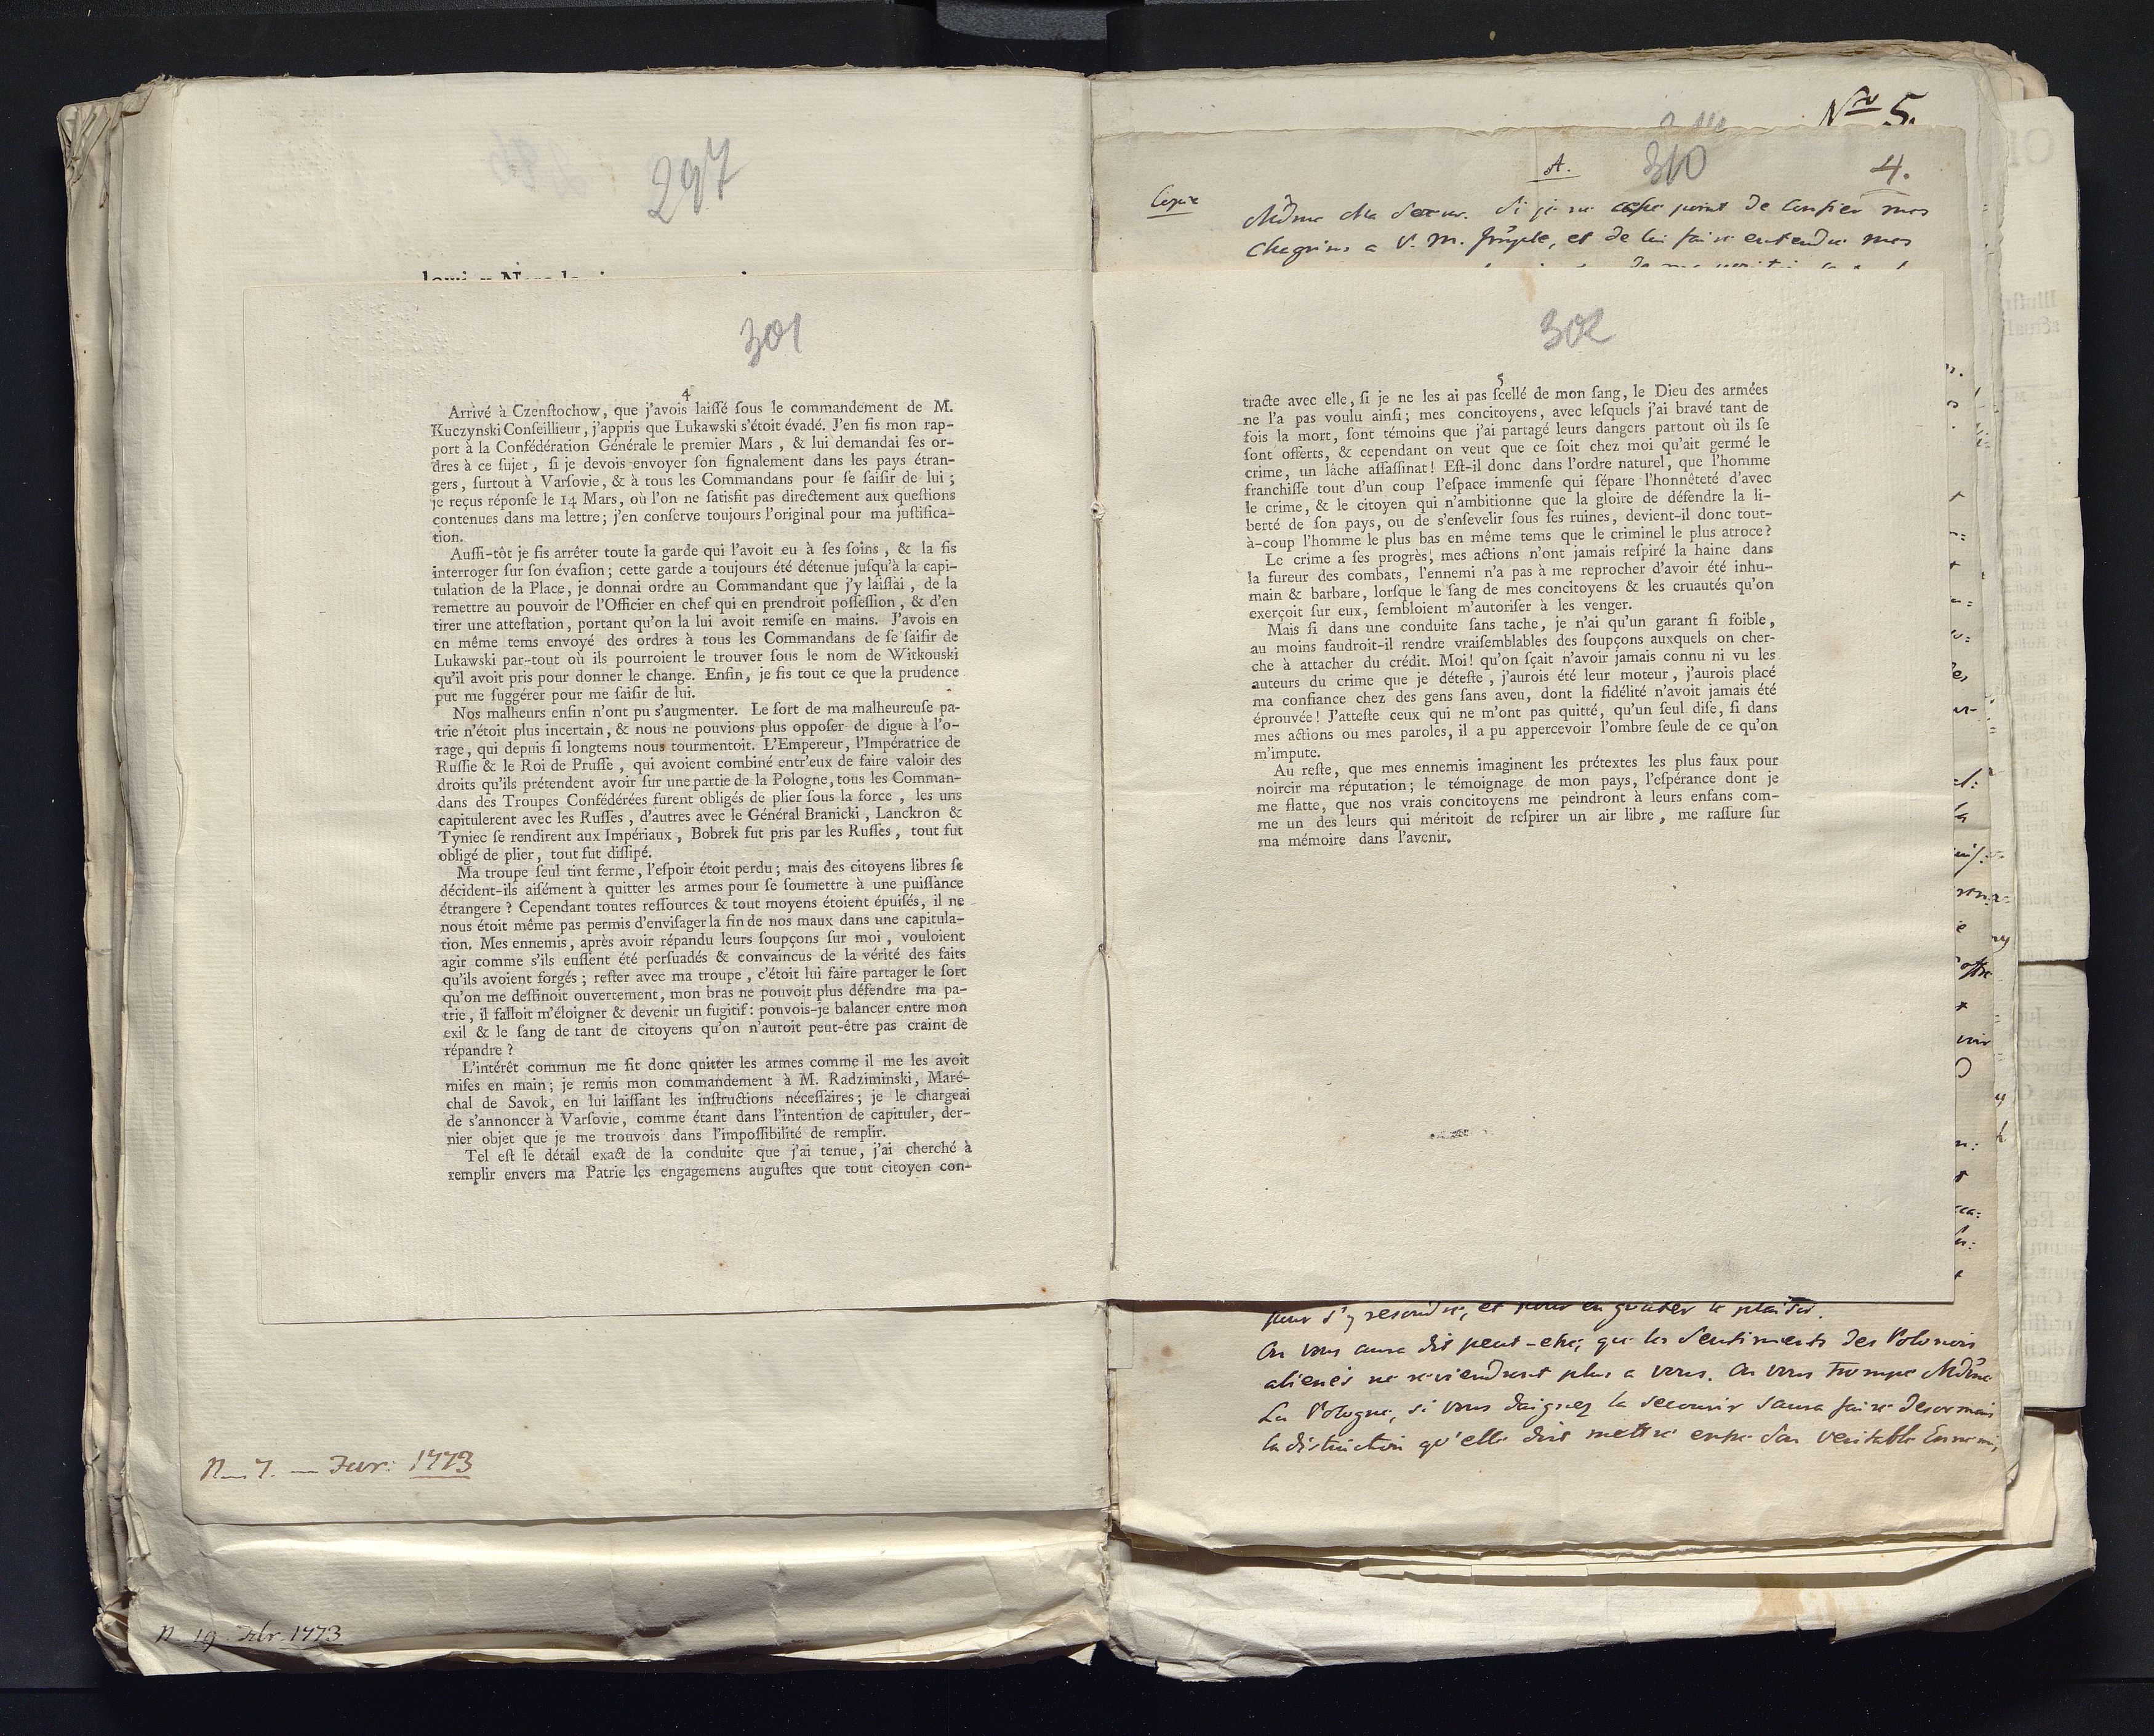 297
301
4
Arrivé à Czenſtochow, que j'avois laiſſé ſous le commandement de M.
Kuczynski Conſeillieur, j'appris que Lukawski s'étoit évadé. J'en fis mon rap-
port à la Confédération Générale le premier Mars, & lui demandai ſes or-
dres à ce ſujet, ſi je devois envoyer ſon ſignalement dans les pays étran-
gers, ſurtout à Varſovie, & à tous les Commandans pour ſe ſaiſir de lui;
je reçus réponſe le 14 Mars, où l'on ne ſatisfit pas directement aux queſtions
contenues dans ma lettre; j'en conſerve toujours l'original pour ma juſtifica-
tion.
Auſſi-tôt je fis arrêter toute la garde qui l'avoit eu à ſes ſoins, & la fis
interroger ſur ſon évaſion; cette garde a toujours été détenue juſqu'à la capi-
tulation de la Place, je donnai ordre au Commandant que j'y laiſſai, de la
remettre au pouvoir de l'Officier en chef qui en prendroit poſſeſſion, & d'en
tirer une atteſtation, portant qu'on la lui avoit remiſe en mains. J'avois en
en même tems envoyé des ordres à tous les Commandans de ſe ſaiſir de
Lukawski par-tout où ils pourroient le trouver ſous le nom de Witkouski
qu'il avoit pris pour donner le change. Enfin, je fis tout ce que la prudence
put me ſuggérer pour me ſaiſir de lui.
Nos malheurs enfin n'ont pu s'augmenter. Le ſort de ma malheureuſe pa-
trie n'étoit plus incertain, & nous ne pouvions plus oppoſer de digue à l'o-
rage, qui depuis ſi longtems nous tourmentoit. L'Empereur, l'Impératrice de
Ruſſie & le Roi de Pruſſe, qui avoient combiné entr'eux de faire valoir des
droits qu'ils prétendent avoir ſur une partie de la Pologne, tous les Comman-
dans des Troupes Confédérées furent obligés de plier ſous la force, les uns
capitulerent avec les Ruſſes, d'autres avec le Général Branicki, Lanckron &
Tyniec ſe rendirent aux Impériaux, Bobrek fut pris par les Ruſſes, tout fut
obligé de plier, tout fut diſſipé.
Ma troupe ſeul tint ferme, l'eſpoir étoit perdu; mais des citoyens libres ſe
décident-ils aiſément à quitter les armes pour ſe ſoumettre à une puiſſance
étrangere? Cependant toutes reſſources & tout moyens étoient épuiſés, il ne
nous étoit même pas permis d'enviſager la fin de nos maux dans une capitula-
tion. Mes ennemis, après avoir répandu leurs ſoupçons ſur moi, vouloient
agir comme s'ils euſſent été perſuadés & convaincus de la vérité des faits
qu'ils avoient forgés; reſter avec ma troupe, c'étoit lui faire partager le ſort
qu'on me deſtinoit ouvertement, mon bras ne pouvoit plus défendre ma pa-
trie, il falloit m'éloigner & devenir un fugitif: pouvois-je balancer entre mon
exil & le ſang de tant de citoyens qu'on n'auroit peut-être pas craint de
répandre?
L'intérêt commun me fit donc quitter les armes comme il me les avoit
miſes en main; je remis mon commandement à M. Radziminski, Maré-
chal de Savok, en lui laiſſant les inſtructions néceſſaires; je le chargeai
de s'annoncer à Varſovie, comme étant dans l'intention de capituler, der-
nier objet que je me trouvois dans l'impoſſibilité de remplir.
Tel eſt le détail exact de la conduite que j'ai tenue, j'ai cherché à
remplir envers ma Patrie les engagemens auguſtes que tout citoyen con-
1773
1773
Nro 5.
A.
310
4.
Copie
point de confier mes
chagrins a V. M. et de lui faire entendre mes
302
5
tracte avec elle, ſi je ne les ai pas ſcellé de mon ſang, le Dieu des armées
ne l'a pas voulu ainſi; mes concitoyens, avec leſquels j'ai bravé tant de
fois la mort, ſont témoins que j'ai partagé leurs dangers partout où ils ſe
ſont offerts, & cependant on veut que ce ſoit chez moi qu'ait germé le
crime, un lâche aſſaſſinat! Eſt-il donc dans l'ordre naturel, que l'homme
franchiſſe tout d'un coup l'eſpace immenſe qui ſépare l'honnêteté d'avec
le crime, & le citoyen qui n'ambitionne que la gloire de défendre la li-
berté de ſon pays, ou de s'enſevelir ſous ſes ruines, devient-il donc tout-
à-coup l'homme le plus bas en même tems que le criminel le plus atroce?
Le crime a ſes progrès, mes actions n'ont jamais reſpiré la haine dans
la fureur des combats, l'ennemi n'a pas à me reprocher d'avoir été inhu-
main & barbare, lorſque le ſang de mes concitoyens & les cruautés qu'on
exerçoit ſur eux, ſembloient m'autoriſer à les venger.
Mais ſi dans une conduite ſans tache, je n'ai qu'un garant ſi foible,
au moins faudroit-il rendre vraiſemblables des ſoupçons auxquels on cher-
che à attacher du crédit. Moi! qu'on ſçait n'avoir jamais connu ni vu les
auteurs du crime que je déteſte, j'aurois été leur moteur, j'aurois placé
ma confiance chez des gens ſans aveu, dont la fidélité n'avoit jamais été
éprouvée! J'atteſte ceux qui ne m'ont pas quitté, qu'un ſeul diſe, ſi dans
mes actions ou mes paroles, il a pu appercevoir l'ombre ſeule de ce qu'on
m'impute.
Au reſte, que mes ennemis imaginent les prétextes les plus faux pour
noircir ma réputation; le témoignage de mon pays, l'eſpérance dont je
me flatte, que nos vrais concitoyens me peindront à leurs enfans com-
me un des leurs qui méritoit de reſpirer un air libre, me raſſure ſur
ma mémoire dans l'avenir.
pour s'y resoudre, et pour en gouter le plaisir.
On vous aura dit peut-etre, que les Sentiments des Polonois
alienés ne reviendront plus a vous. On vous trompe
La Pologne, si vous daignez la secourir saura faire desormais
la distinction qu'elle doit mettre entre son veritable Ennemi,